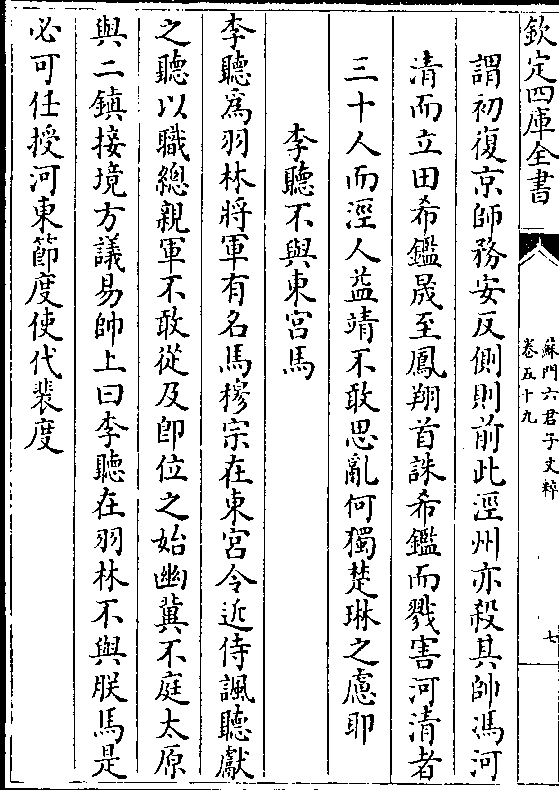 欽定四庫全書
蘇門六君子文粹
卷五十九
七
謂初復京師務安反側則前此涇州亦殺其帥馮河
清而立田希鑑晟至鳳翔首誅希鑑而戮害河清者
三十人而涇人益靖不敢思亂何獨楚琳之慮耶
李聽不與東宮馬
李聽為羽林將軍有名馬穆宗在東宮令近侍諷聽獻
之聽以職總親軍不敢從及即位之始幽冀不庭太原
與二鎮接境方議易帥上曰李聽在羽林不與朕馬是
必可任授河東節度使代裴度